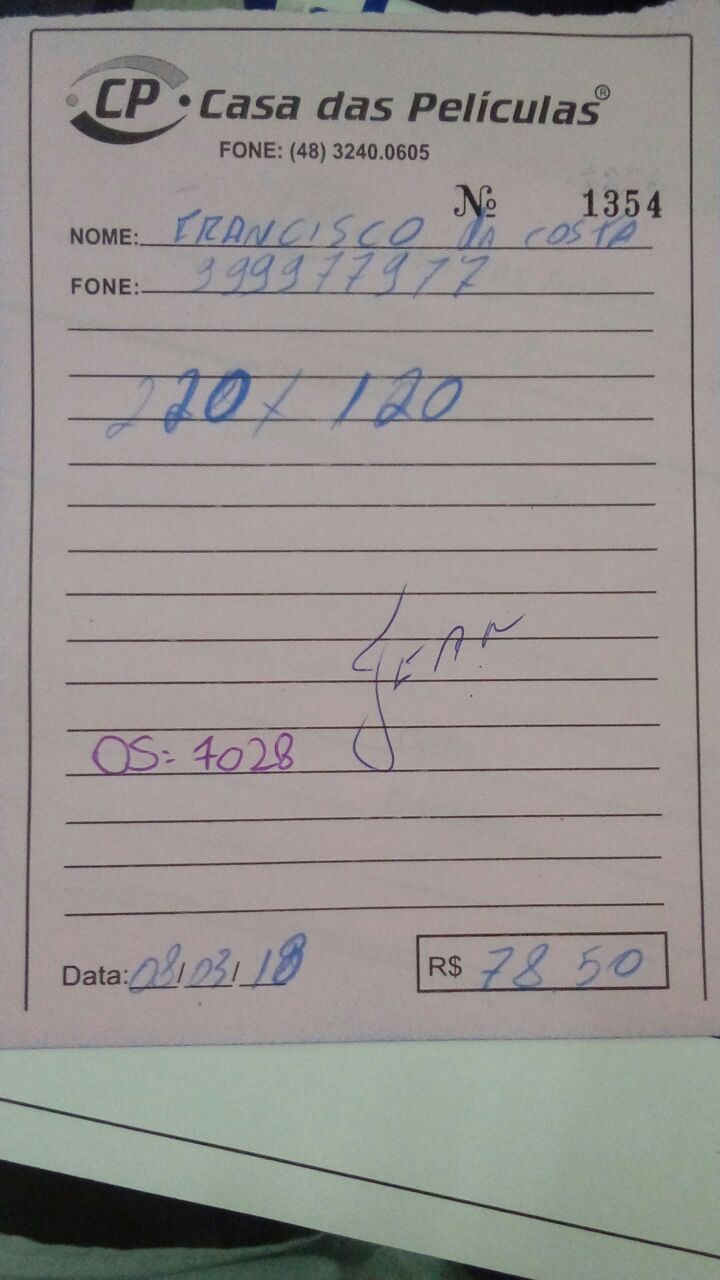 CP • Casa das Películas®
FONE: (48) 3240.0605
Nº 1354
NOME: FRANCISCO DA COSTA
FONE: 999977977
220 / 120
JEAN
OS: 7028
Data: 08/03/18
R$ 78 50